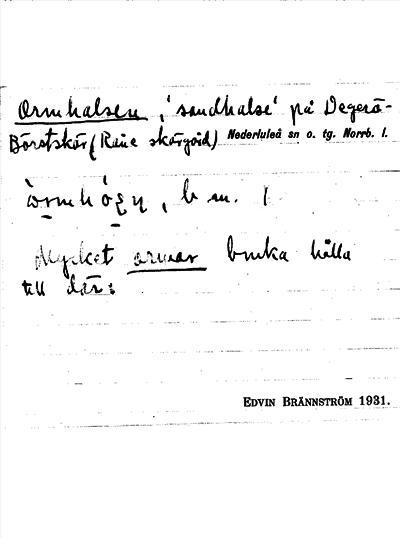 Ormhalsen, 'sandhalse' på Degerö-
Börstskär (Råne skärgård) Nederluleå sn o. tg. Norrb. l.
b m. 1
Mycket ormar bruka hålla
till där:
EDVIN BRÄNNSTRÖM 1931.